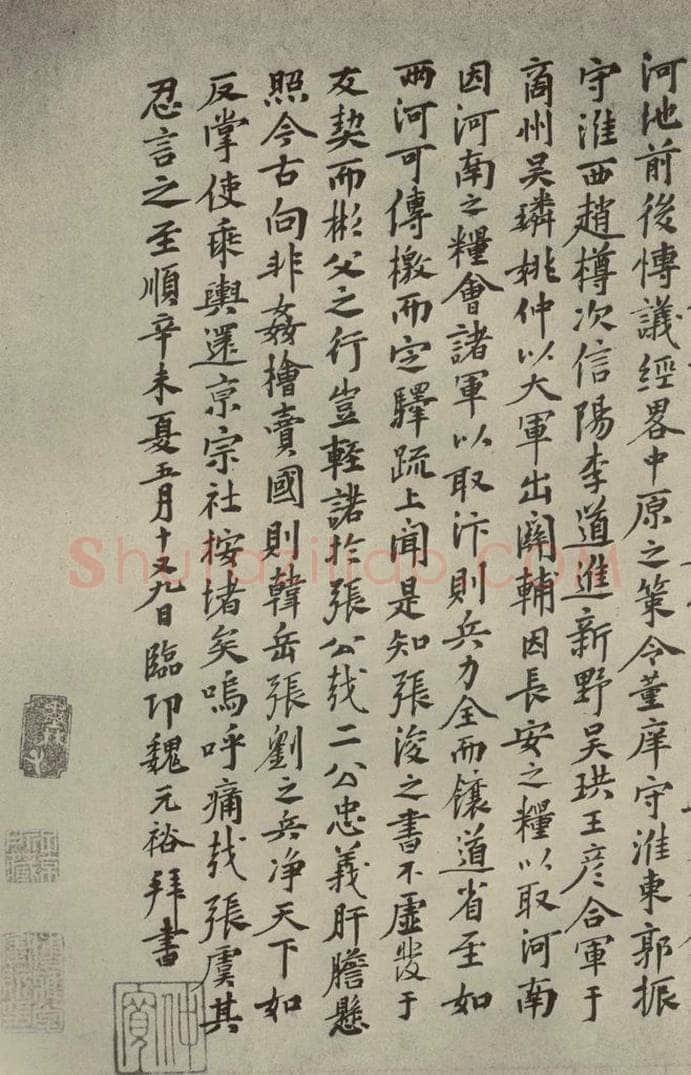 河池前後慱議經畧中原之策令董庠守淮東郭振
守淮西趙樽次信陽李道進新野吳珙王彦合軍于
商州吳璘姚仲以大軍出關輔因長安之糧以取河南
因河南之糧會諸軍以取汴則兵力全而饟道省至如
兩河可傳檄而定驛疏上聞是知張浚之書不虛發于
友契而彬父之行豈輕諾於張公哉二公忠義肝膽懸
照今古向非姦檜賣國則韓岳張劉之兵净天下如
反掌使乘輿還京宗社按堵矣嗚呼痛哉張虞其
忍言之至順辛未夏五月十又九日臨卭魏元裕拜書
Shufaziliao.COM